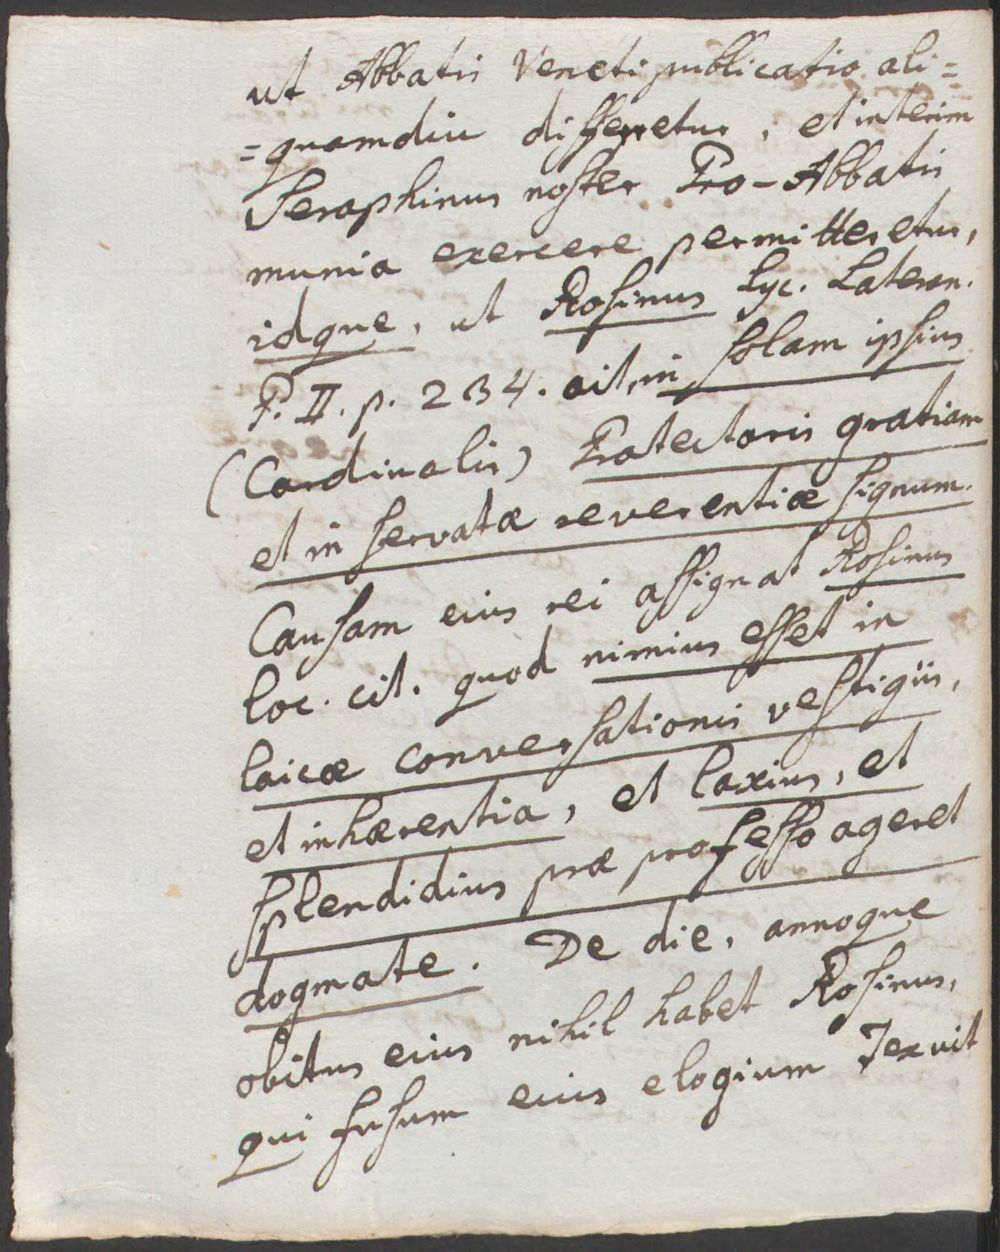 ut Abbatis Veneti publicatio ali=
=quamdiu differretur, et interim
Seraphinus noster Pro-Abbatis
munia exercere permitteretur,
idque, ut Rosinus Lyc. Lateran.
P. II. p. 234. ait, in solam ipsius
(Cardinalis) Protectoris gratiam
et in servatæ reverentiæ signum.
Causam eius rei assignat Rosinus
loc. cit. quod nimius esset in
laicæ conversationis vestigiis,
et inhærentia, et laxius, et
splendidius præ professo ageret
dogmate. De die, annoque
obitus eius nihil habet Rosinus,
qui fusum eius elogium texuit